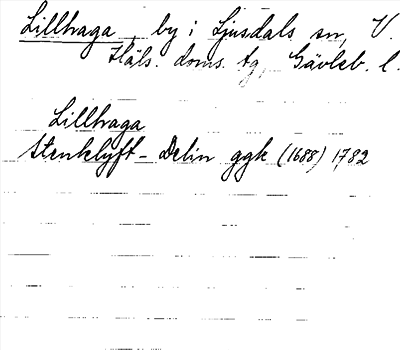 Lillhaga, by i Ljusdals sn, V.
Häls. doms. tg, Gävleb. l.
Lillhaga
Stenklyft - Delin ggk (1688) 1782